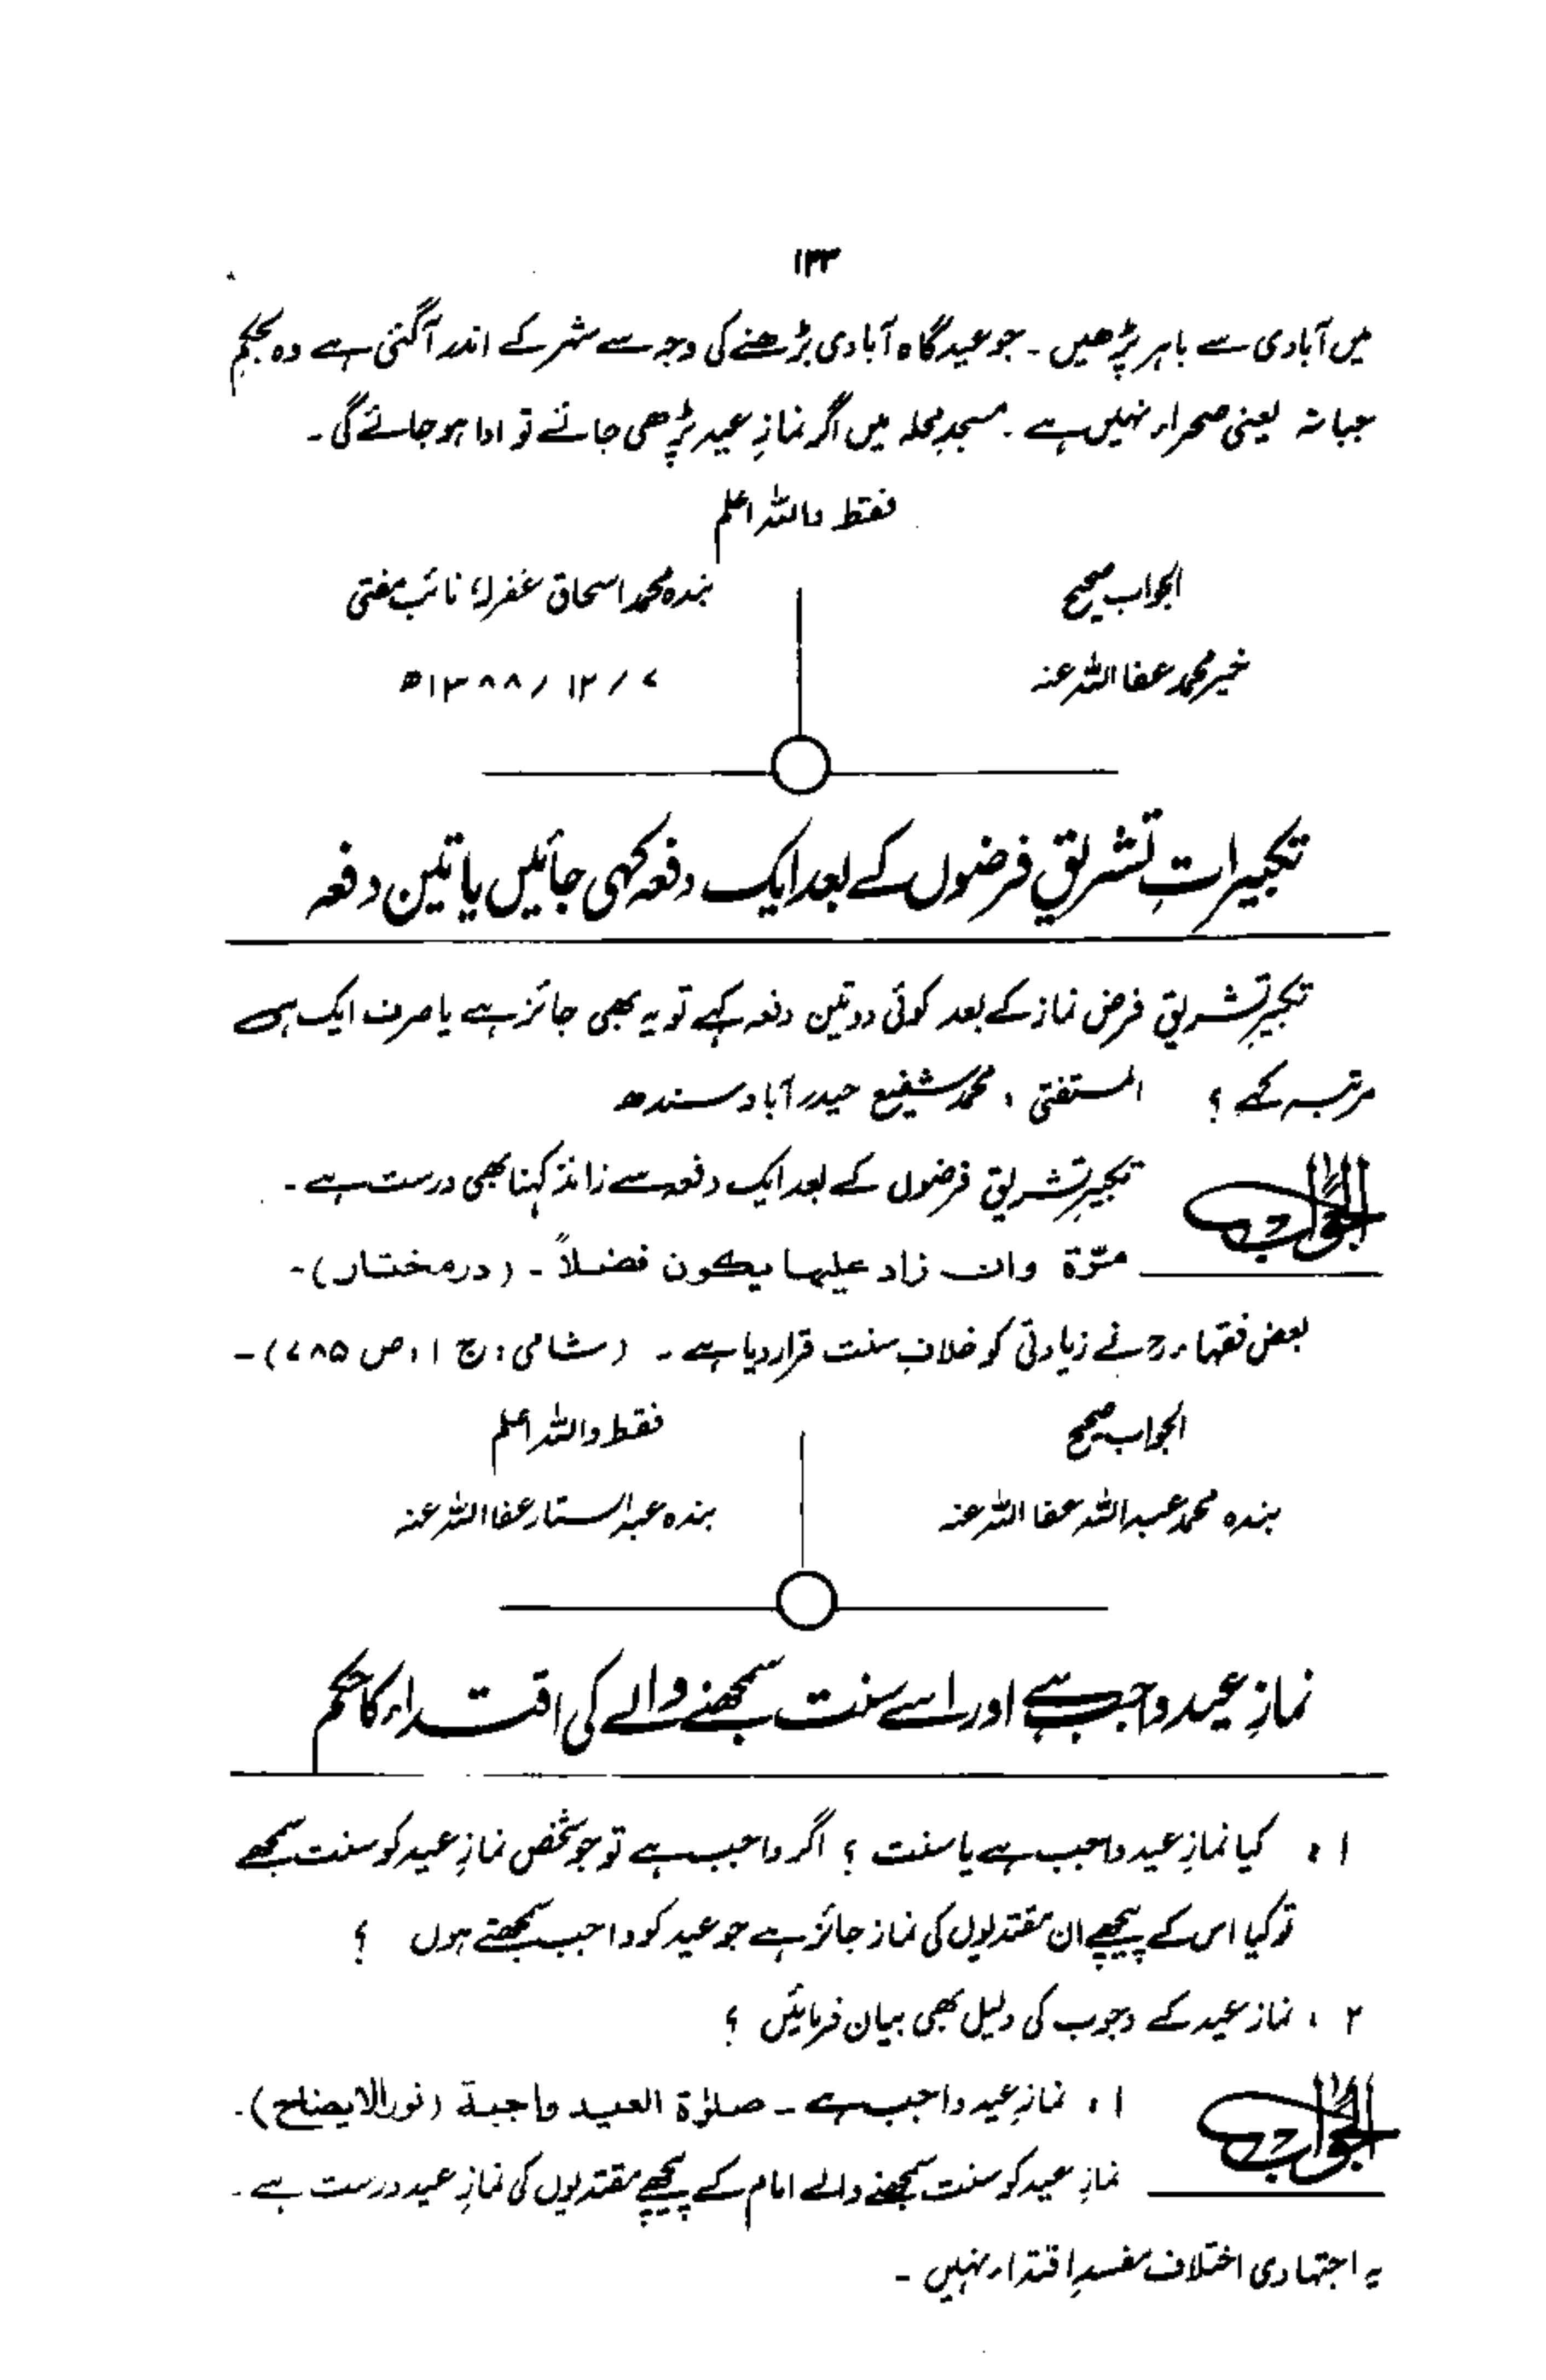 ۱۳۳
میں آبادی سے باہر پڑھیں ۔ جو عیدگاہ آبادی بڑھنے کی وجہ سے شہر کے اندر آگئی ہے وہ بحکم
جبانہ یعنی صحراء نہیں ہے ۔ مسجدِ محلہ میں اگر نمازِ عید پڑھی جائے تو ادا ہو جائے گی ۔
فقط واللہ اعلم
الجواب صحیح
بندہ محمد اسحاق غفرلہٗ نائب مفتی
خیر محمد عفا اللہ عنہ
۷ / ۱۲ / ۱۳۸۸ھ
تکبیراتِ تشریق فرضوں کے بعد ایک دفعہ کہی جائیں یا تین دفعہ
تکبیرِ تشریق فرض نماز کے بعد کوئی دو تین دفعہ کہے تو یہ بھی جائز ہے یا صرف ایک ہی
مرتبہ کہے ؟ المستفتی ، محمد شفیع حیدر آباد سندھ
الجواب
تکبیرِ تشریق فرضوں کے بعد ایک دفعہ سے زائد کہنا بھی درست ہے ۔
مرّة وان زاد علیہا یکون فضلاً ۔ (درمختار) ۔
بعض فقہاء رح نے زیادتی کو خلافِ سنت قرار دیا ہے ۔ (شامی : ج ۱ ، ص ۷۸۵) ۔
الجواب صحیح
فقط واللہ اعلم
بندہ محمد عبداللہ عفا اللہ عنہ
بندہ عبدالستار عفا اللہ عنہ
نمازِ عید واجب ہے اور اسے سنت سمجھنے والے کی اقتداء کا حکم
۱ : کیا نمازِ عید واجب ہے یا سنت ؟ اگر واجب ہے تو جو شخص نمازِ عید کو سنت سمجھے
تو کیا اس کے پیچھے ان مقتدیوں کی نماز جائز ہے جو عید کو واجب سمجھتے ہوں ؟
۲ : نماز عید کے وجوب کی دلیل بھی بیان فرمائیں ؟
الجواب
۱ : نمازِ عید واجب ہے ۔ صلوٰة العید واجبة (نورالایضاح) ۔
نمازِ عید کو سنت سمجھنے والے امام کے پیچھے مقتدیوں کی نمازِ عید درست ہے ۔
یہ اجتہادی اختلاف مفسدِ اقتداء نہیں ۔